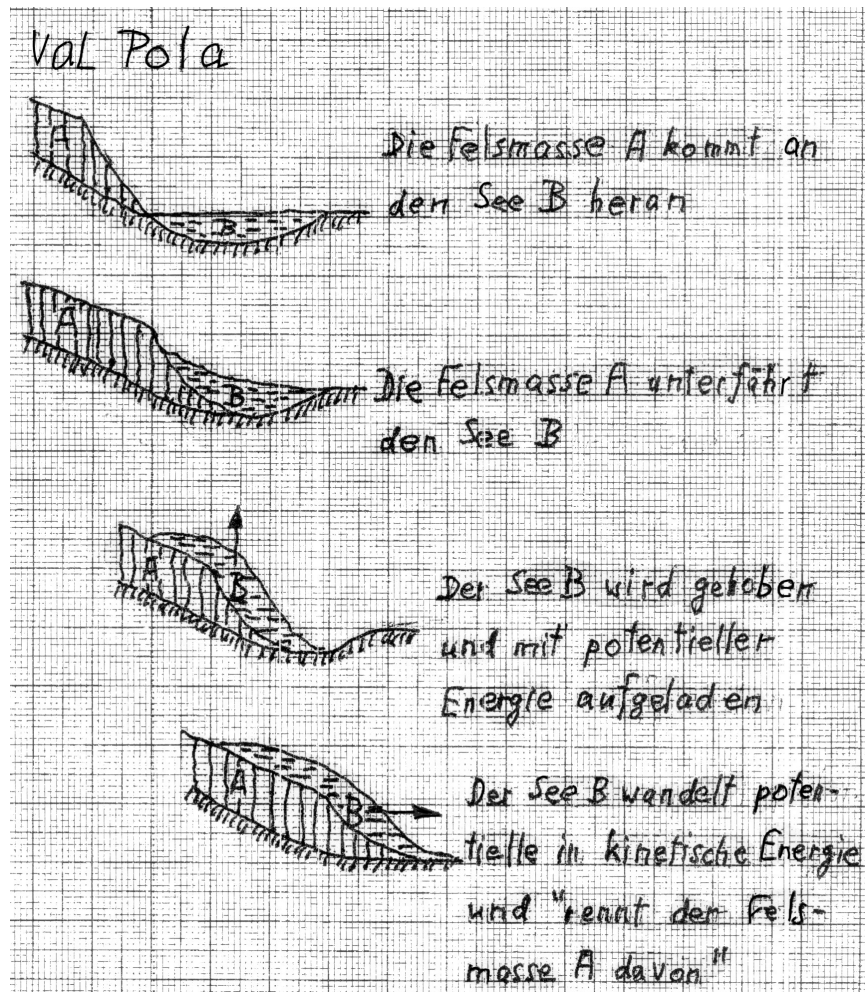 Val Pola
A
B
Die Felsmasse A kommt an
den See B heran
A
B
Die Felsmasse A unterfährt
den See B
A
B
Der See B wird gehoben
und mit potentieller
Energie aufgeladen
A
B
Der See B wandelt poten-
tielle in kinetische Energie
und "rennt der Fels-
masse A davon"